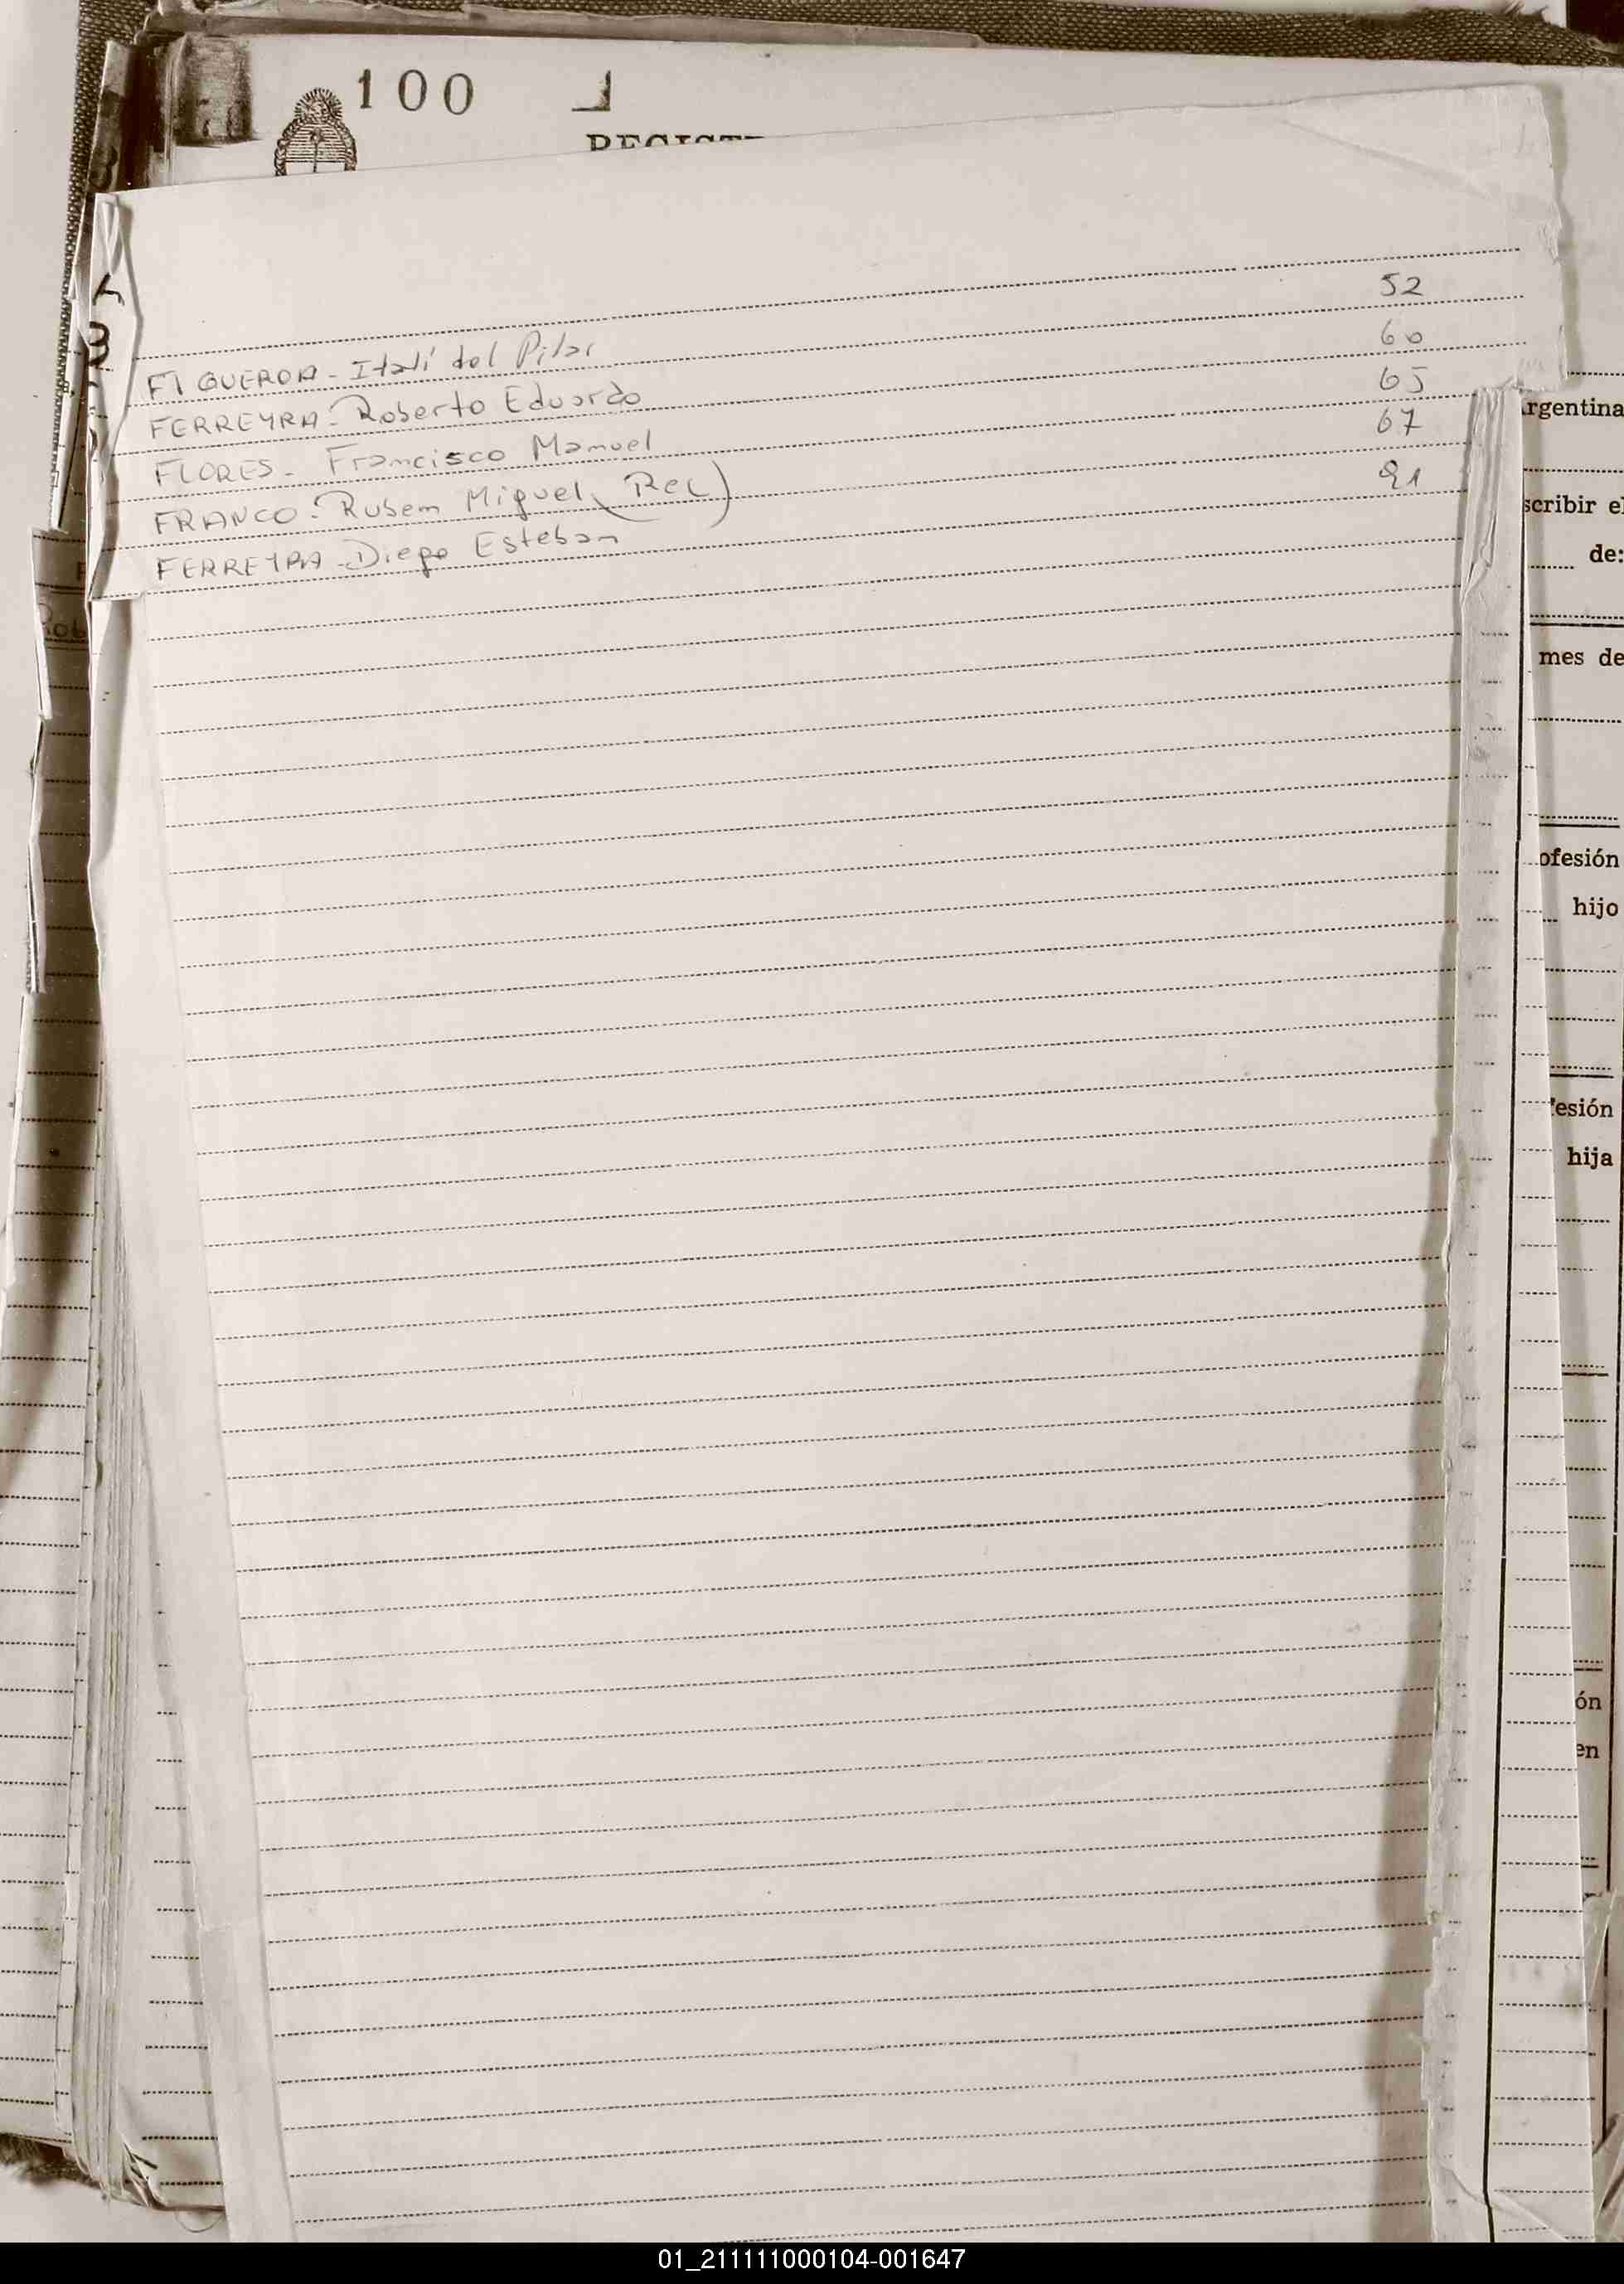 100
FIGUEROA - Italí del Pilar 52
FERREYRA - Roberto Eduardo 60
FLORES - Francisco Manuel 65
FRANCO - Ruben Miguel (Rec) 67
FERREYRA - Diego Esteban 91
A
B
rgentina
scribir el
de:
mes de
ofesión
hijo
esión
hija
ón
en
01_211111000104-001647